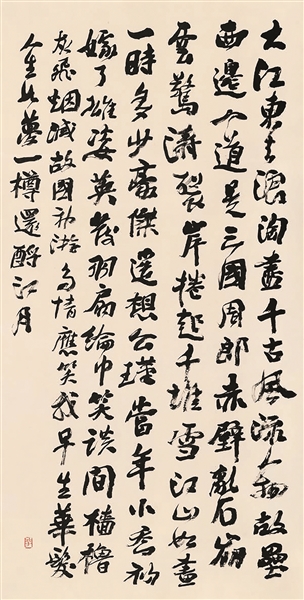 大江東去浪淘盡千古風流人物故壘
西邊人道是三國周郎赤壁亂石崩
雲驚濤裂岸捲起千堆雪江山如畫
一時多少豪傑遙想公瑾當年小喬初
嫁了雄姿英發羽扇綸巾笑談間檣櫓
灰飛烟滅故國神游多情應笑我早生華髮
人生如夢一樽還酹江月